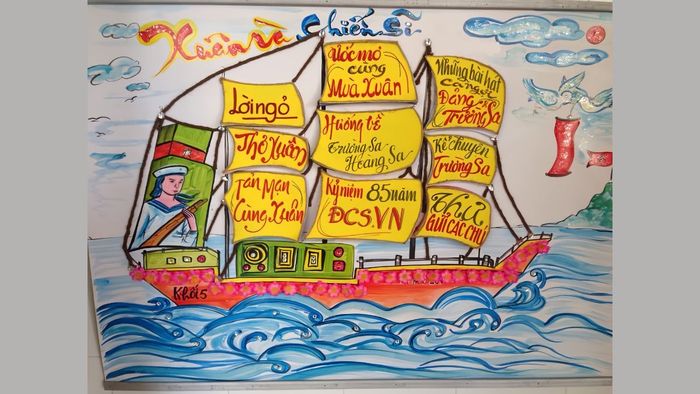 Xuân và Chiến Sĩ
Ước mơ
cùng
Mùa Xuân
Những bài hát
ca ngợi
Đảng -
Trường Sa
Lời ngỏ
Thơ Xuân
Hướng về
Trường Sa -
Hoàng Sa
Kể chuyện
Trường Sa
Tản Mạn
Cùng Xuân
Kỷ niệm 85 năm
ĐCS.VN
Thư
GửI CÁC CHÚ
Khối 5